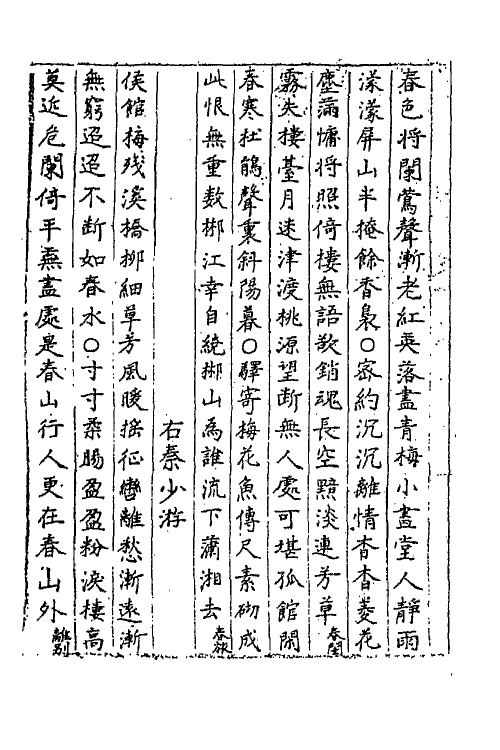 春色將闌鶯聲漸老紅英落盡青梅小畫堂人靜雨
濛濛屏山半掩餘香裊○密約沉沉離情杳杳菱花
塵滿慵將照倚樓無語欲銷魂長空黯淡連芳草春閨
霧失樓臺月迷津渡桃源望斷無人處可堪孤館閉
春寒杜鵑聲裏斜陽暮○驛寄梅花魚傳尺素砌成
此恨無重數郴江幸自繞郴山為誰流下瀟湘去春旅
右秦少游
侯館梅殘溪橋柳細草芳風暖搖征轡離愁漸遠漸
無窮迢迢不斷如春水○寸寸柔腸盈盈粉淚樓高
莫近危闌倚平蕪盡處是春山行人更在春山外離別